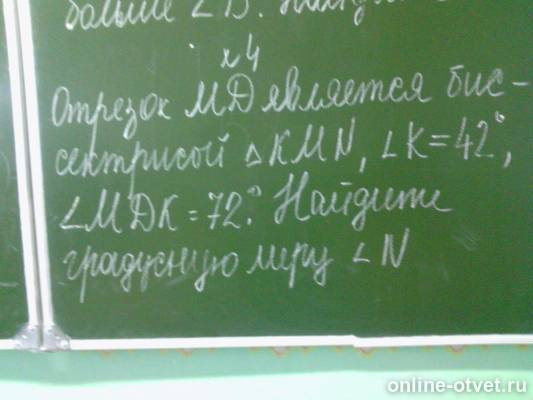 больше ∠В.
№4
Отрезок МД является бис-
сектрисой △KMN, ∠K=42°,
∠МДК=72°. Найдите
градусную меру ∠N
online-otvet.ru